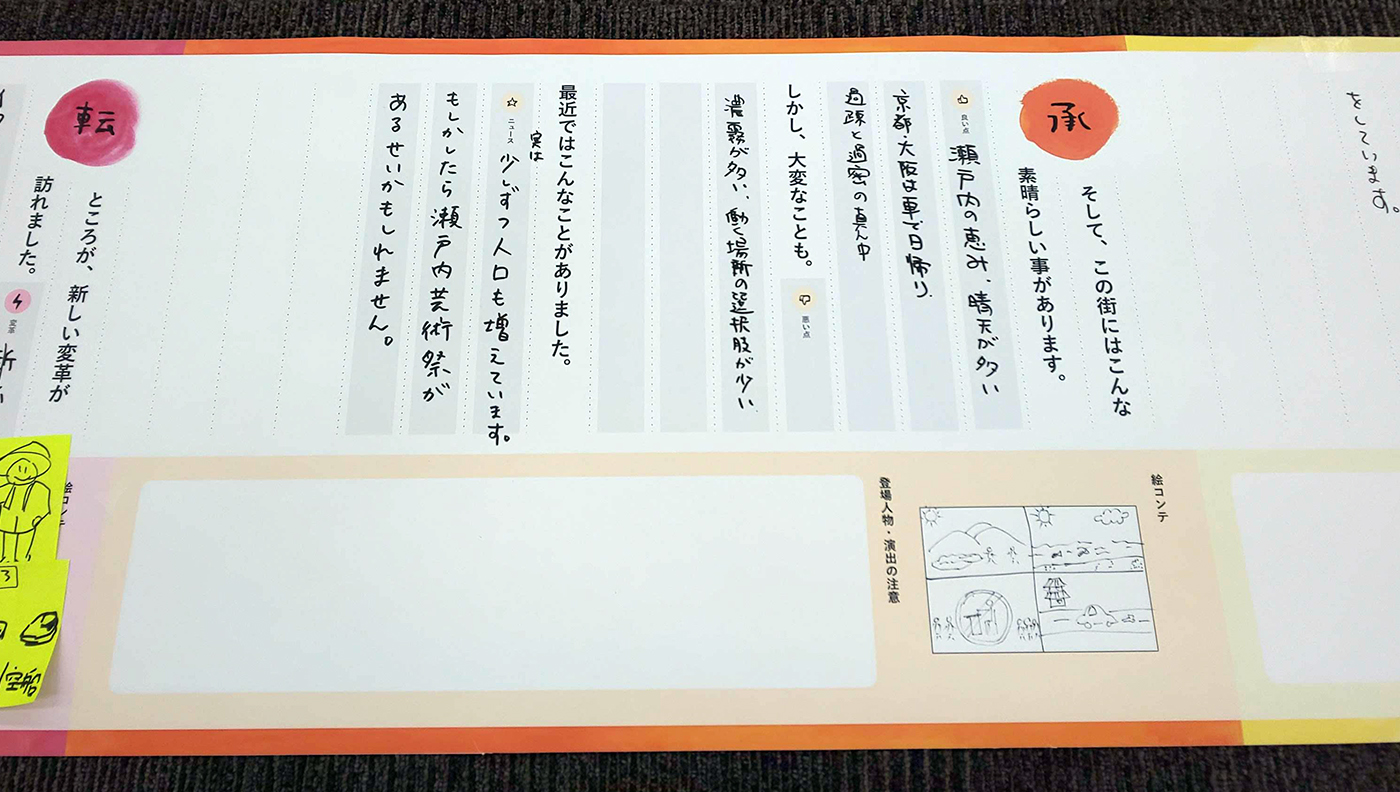 をしています。
承
そして、この街にはこんな
素晴らしい事があります。
良い点
瀬戸内の恵み、晴天が多い
京都・大阪は車で日帰り
過疎と過密の真ん中
しかし、大変なことも。
悪い点
濃霧が多い、働く場所の選択肢が少い
最近ではこんなことがありました。
ニュース
実は
少しずつ人口も増えています。
もしかしたら瀬戸内芸術祭が
あるせいかもしれません。
転
ところが、新しい変革が
訪れました。
変革
絵コンテ
登場人物・演出の注意
絵コンテ
3